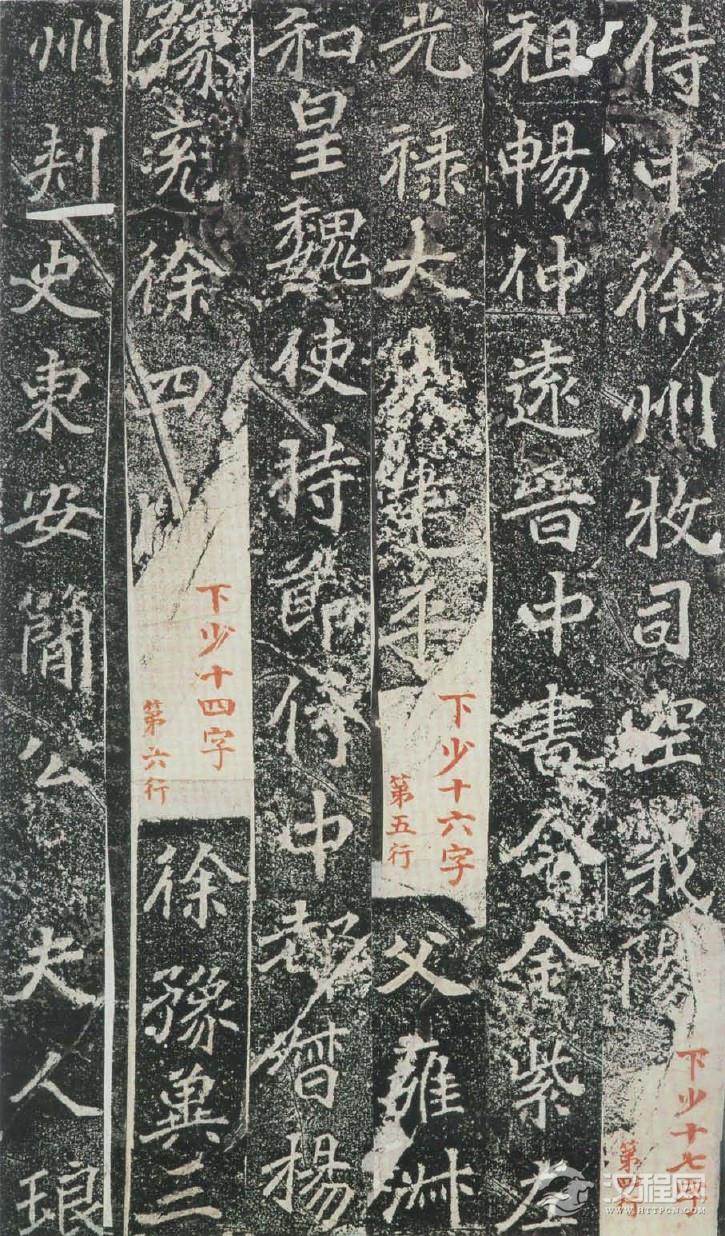 侍中徐州牧司空義陽
下少十七字
第四行
祖暢仲遠晉中書令金紫左
光祿大夫建平
下少十六字
第五行
父雍淑
和皇魏使持節侍中都督揚
豫兗徐四州
下少十四字
第六行
徐豫冀三
州刺史東安簡公夫人琅
汉程网
WWW.HTTPCN.COM